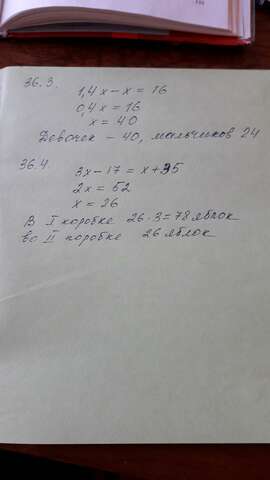 36.3.
1,4x-x = 16
0,4x = 16
x = 40
Девочек - 40, мальчиков 24
36.4.
3x-17 = x+35
2x = 52
x = 26
В I коробке 26·3=78 яблок
во II коробке 26 яблок